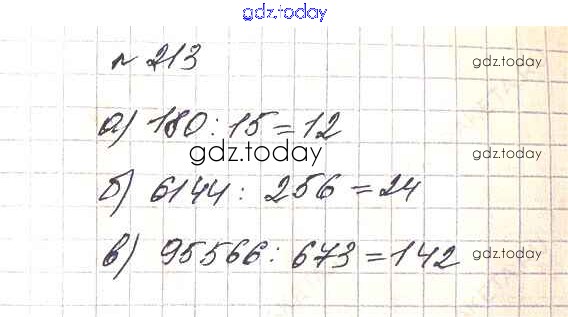 gdz.today
№ 213
gdz.today
а) 180 : 15 = 12
gdz.today
gdz.today
б) 6144 : 256 = 24
в) 95566 : 673 = 142
gdz.today